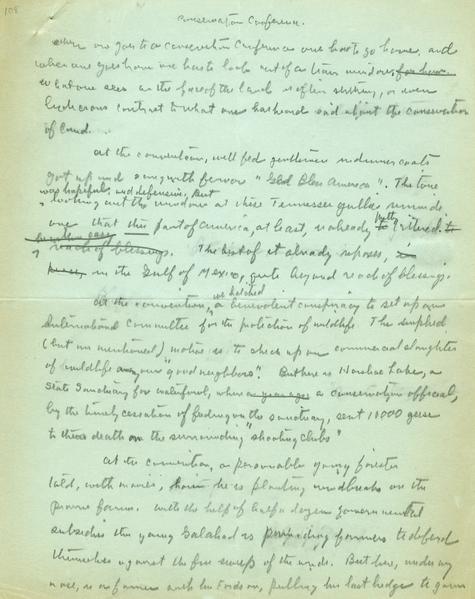 108
Conservation Conference.
When one goes to a conservation conference one has to go home, and
when one goes home one has to look out of a train window for hours.
What one sees on the face of the land is often striking, or even
ludicrous contrast to what one has heard said about the conservation
of land.
At the convention, well fed gentlemen in dinner coats
got up and sang with fervor "God Bless America". The tone
was hopeful, and defensive, but
looking out the window at these Tennessee gullies reminds
one that this part of America, at least, is already pretty
reach of blessings. The best of it already reposes, in
in the Gulf of Mexico, quite beyond reach of blessings.
At the convention, we hatched a benevolent conspiracy to set up an
International Committee for the protection of wildlife. The implied
(but unmentioned) motive is to check up on commercial slaughter
of wildlife among our "good neighbors". But here is Horseshoe Lake, a
State Sanctuary for waterfowl, where a conservation official,
by the timely cessation of feeding on the sanctuary, sent 11000 geese
to their death on the surrounding "shooting clubs"
At the convention, a personable young forester
told, with movies, how he is planting windbreaks on the
prairie farms. With the help of half a dozen governmental
subsidies this young Galahad is persuading farmers to defend
themselves against the free sweep of the winds. But here, under my
nose, is a farmer with his Fordson, pulling his last hedge to gain